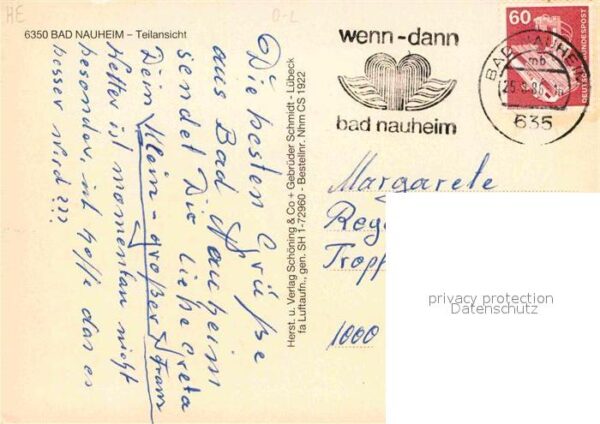 HE
O-L
6350 BAD NAUHEIM – Teilansicht
Die besten Grüße
aus Bad Nauheim
sendet Die liebe Greta
Dein Klein-großer
Wetter ist momentan nicht
besonder, ich hoffe das es
besser wird???
Herst. u. Verlag Schöning & Co + Gebrüder Schmidt - Lübeck
fa Luftaufn., gen. SH 1-72960 - Bestellnr. Nhm CS 1922
wenn-dann
bad nauheim
60
DEUTSCHE BUNDESPOST
BAD NAUHEIM
mb
635
Margarete
1000
privacy protection
Datenschutz